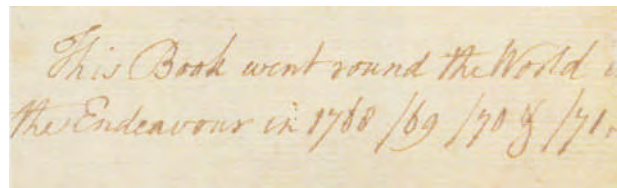 This Book went round the World i
the Endeavour in 1768 /69 /70 & /71.